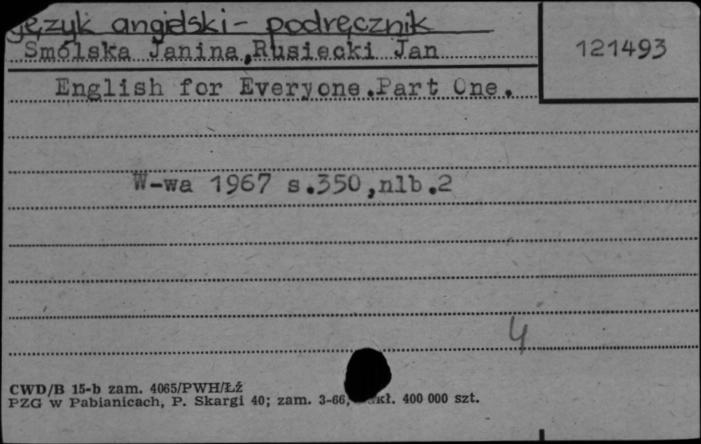 język angielski - podręcznik
Smólska Janina,Rusiecki Jan
121493
English for Everyone.Part One.
W-wa 1967 s.350,nlb.2
4
CWD/B 15-b zam. 4065/PWH/Łź
PZG w Pabianicach, P. Skargi 40; zam. 3-66, kł. 400 000 szt.